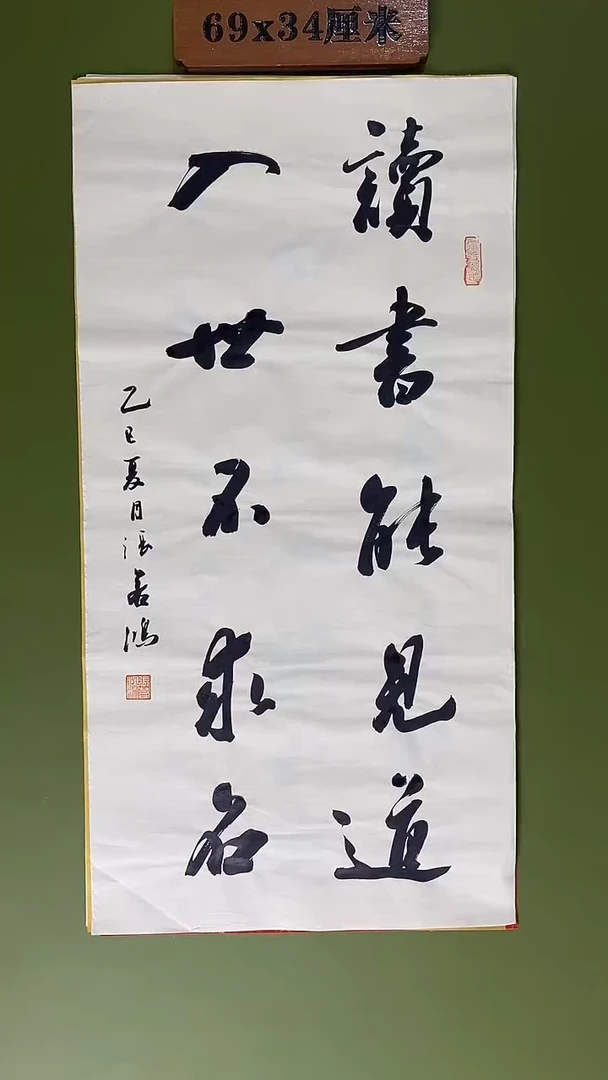 69x34厘米
讀書能見道
入世不求名
乙巳夏月張若鴻